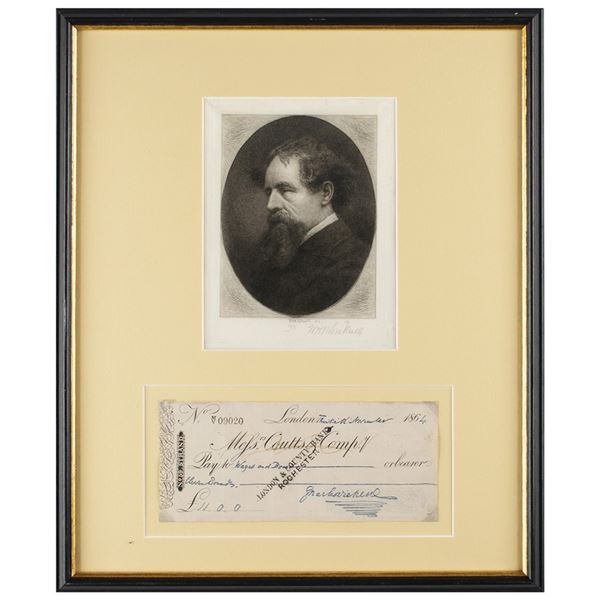 No. 09020 London Thirtieth November 1864
Messrs. Coutts & Compy.
Pay to Wages and or bearer
Eleven Pounds
£11.0.0 Charles Dickens
LONDON & COUNTY BANK
ROCHESTER